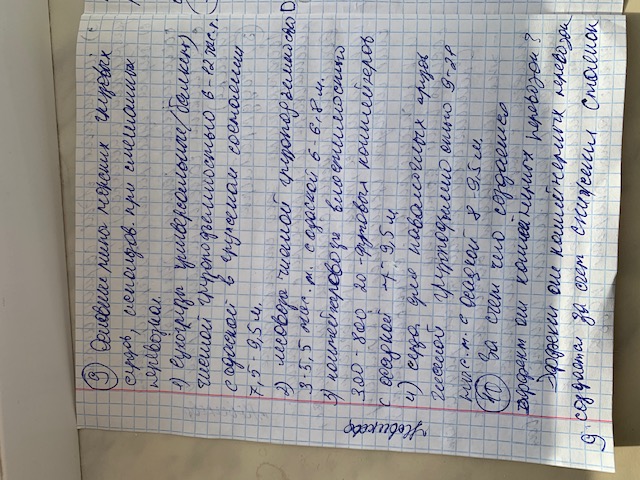 ⑨ Основные типы морских грузовых
судов, использов. при смешанных
перевозках.
1) Сухогрузы универсальные (балкеры)
чистой грузоподъемностью 6-12 тыс. т.
с осадкой в грузовом состоянии
7,5-9,5 м.
2) лесовозы чистой грузоподъемностью
3-5,5 тыс. т. с осадкой 6-6,8 м.
3) контейнеровозы вместимостью
300-800 20-футовых контейнеров
с осадкой 7-9,5 м
4) суда для навалочных грузов
чистой грузоподъемностью 9-2?
тыс. т. с осадкой 8-9,5 м.
⑩ За счет чего создается
эффект от контейнерных перевозок?
Эффект от контейнерных перевозок
создается за счет снижения стоимости
Новикова